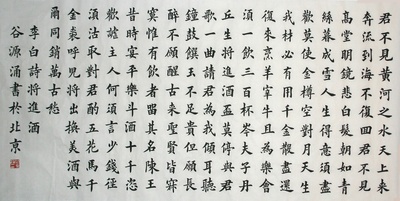 君不見黃河之水天上來
奔流到海不復回君不見
高堂明鏡悲白髮朝如青
絲暮成雪人生得意須盡
歡莫使金樽空對月天生
我材必有用千金散盡還
復來烹羊宰牛且為樂會
須一飲三百杯岑夫子丹
丘生將進酒盃莫停與君
歌一曲請君為我傾耳聽
鐘鼓饌玉不足貴但願長
醉不願醒古來聖賢皆寂
寞惟有飲者留其名陳王
昔時宴平樂斗酒十千恣
歡謔主人何須言少錢徑
須沽取對君酌五花馬千
金裘呼兒將出換美酒與
爾同銷萬古愁
李白詩將進酒
谷源涌書於北京